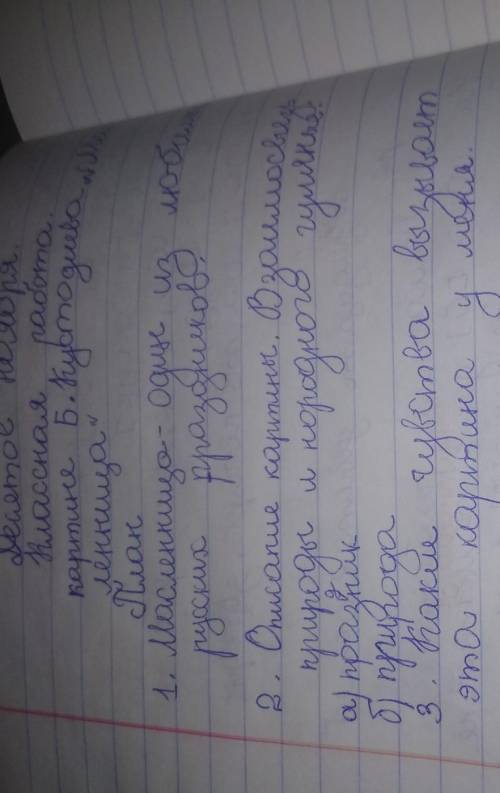 Десятое ноября.
Классная работа.
картине Б. Кустодиева „Мас
ленница"
План
1. Масленница - один из любим
русских праздников.
2. Описание картины. Взаимосвязь
природы и народного гулянья:
а) праздник
б) природа
3. Какие чувства вызывает
эта картина у меня.